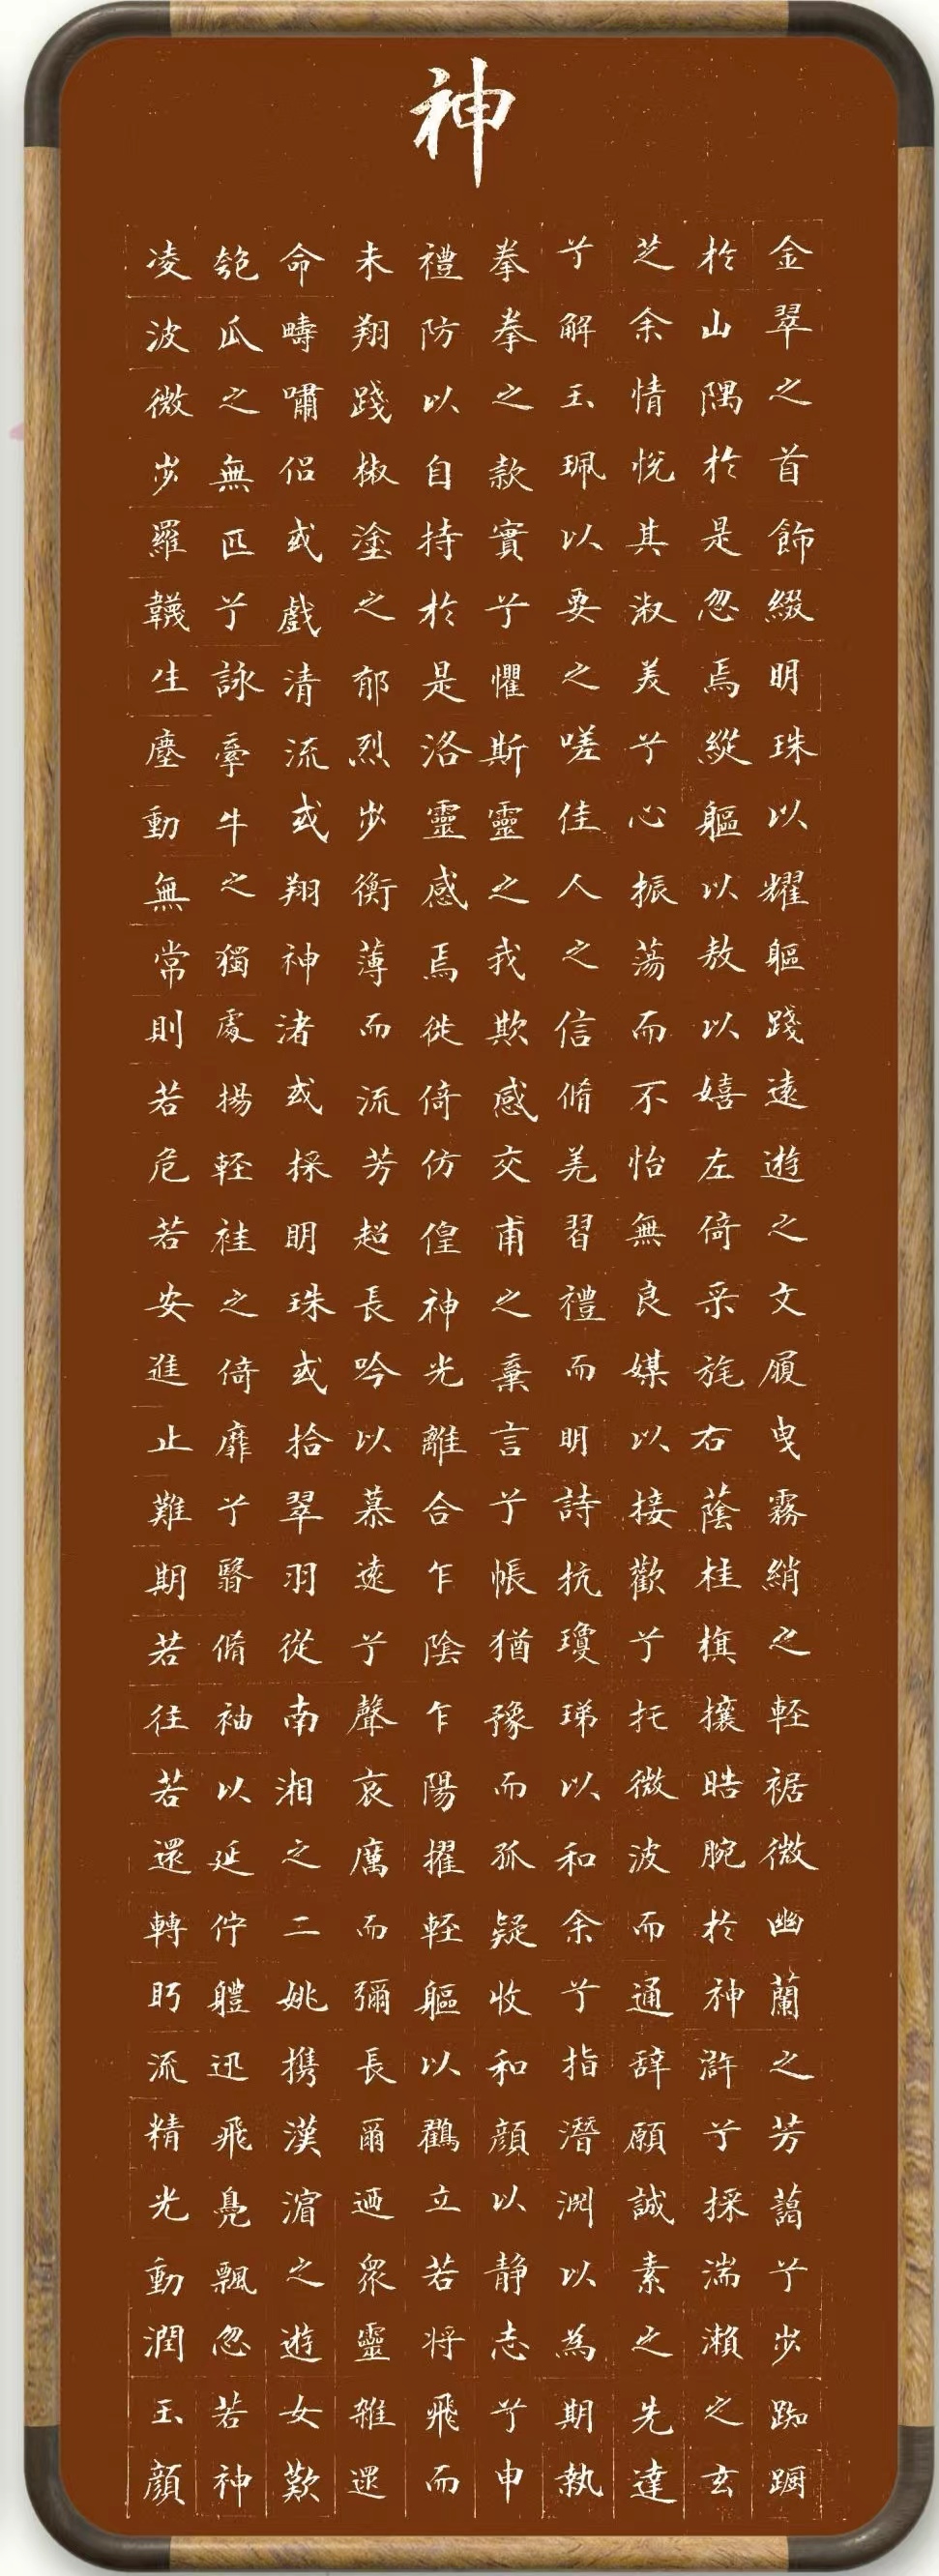 神
金翠之首飾綴明珠以耀軀踐遠遊之文履曳霧綃之輕裾微幽蘭之芳藹兮步踟蹰
於山隅於是忽焉縱軀以敖以嬉左倚采旄右蔭桂旗攘皓腕於神滸兮採湍瀨之玄
芝余情悅其淑美兮心振蕩而不怡無良媒以接歡兮托微波而通辭願誠素之先達
兮解玉珮以要之嗟佳人之信脩羌習禮而明詩抗瓊珶以和余兮指潛渊以為期執
拳拳之款實兮懼斯靈之我欺感交甫之棄言兮帳猶豫而狐疑收和顏以静志兮申
禮防以自持於是洛靈感焉徙倚仿偟神光離合乍陰乍陽擢輕軀以鶴立若將飛而
未翔踐椒塗之郁烈步衡薄而流芳超長吟以慕遠兮聲哀厲而彌長爾迺眾靈雜遝
命疇嘯侣或戲清流或翔神渚或採明珠或拾翠羽從南湘之二姚携漢濵之遊女歎
匏瓜之無匹兮詠牽牛之獨處揚輕袿之倚靡兮翳脩袖以延佇軆迅飛鳧飄忽若神
凌波微步羅韈生塵動無常則若危若安進止難期若往若還轉眄流精光動潤玉顏